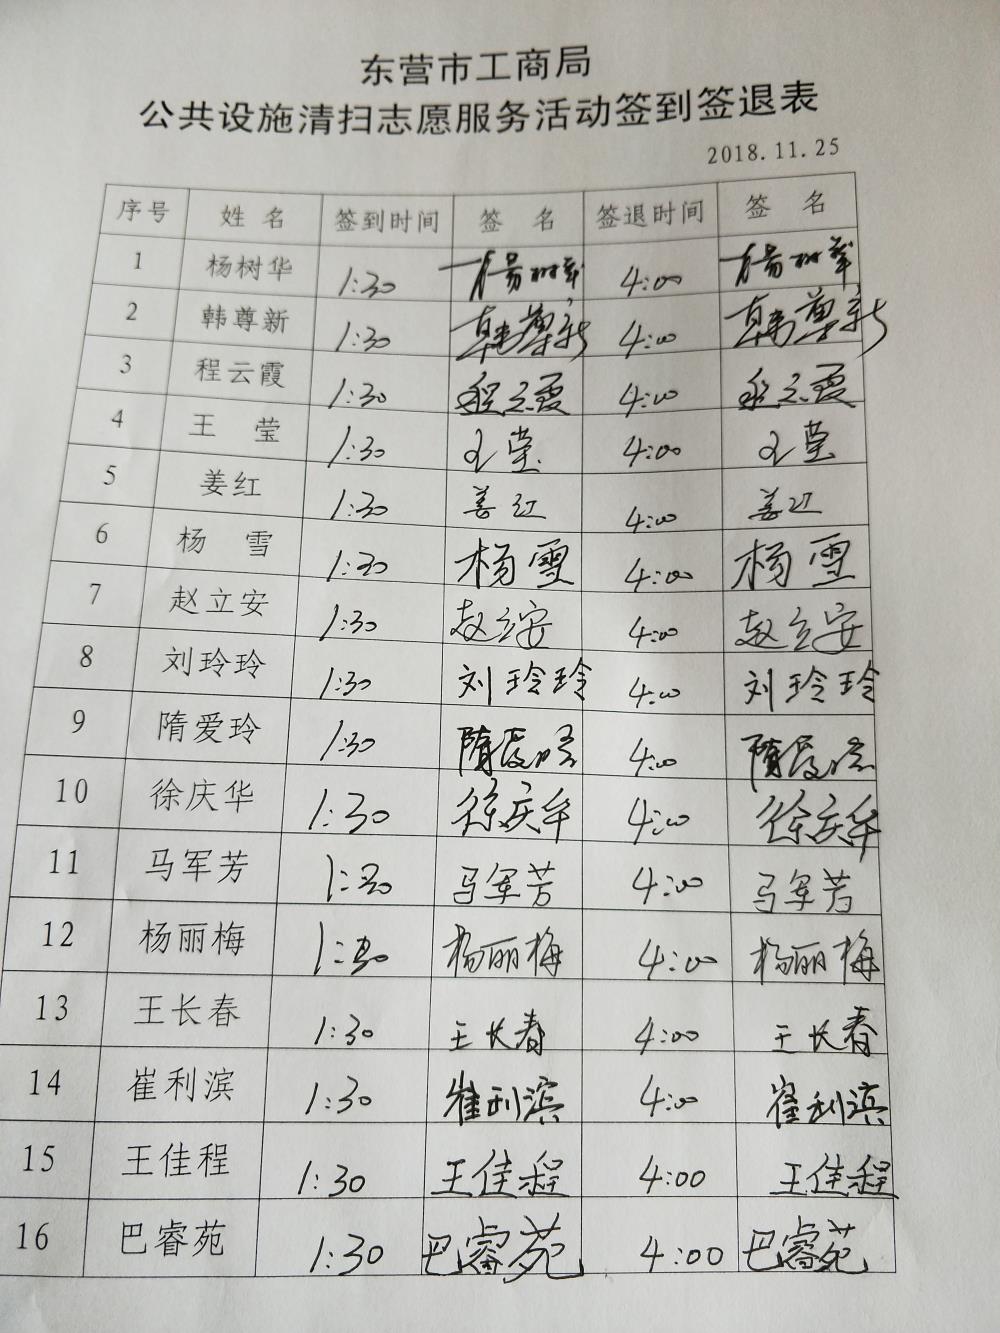 东营市工商局
公共设施清扫志愿服务活动签到签退表
2018.11.25
序号 姓 名 签到时间 签 名 签退时间 签 名
1 杨树华 1:30 杨树华 4:00 杨树华
2 韩尊新 1:30 韩尊新 4:00 韩尊新
3 程云霞 1:30 程云霞 4:00 程云霞
4 王 莹 1:30 王莹 4:00 王莹
5 姜红 1:30 姜红 4:00 姜红
6 杨 雪 1:30 杨雪 4:00 杨雪
7 赵立安 1:30 赵立安 4:00 赵立安
8 刘玲玲 1:30 刘玲玲 4:00 刘玲玲
9 隋爱玲 1:30 隋爱玲 4:00 隋爱玲
10 徐庆华 1:30 徐庆华 4:00 徐庆华
11 马军芳 1:30 马军芳 4:00 马军芳
12 杨丽梅 1:30 杨丽梅 4:00 杨丽梅
13 王长春 1:30 王长春 4:00 王长春
14 崔利滨 1:30 崔利滨 4:00 崔利滨
15 王佳程 1:30 王佳程 4:00 王佳程
16 巴睿苑 1:30 巴睿苑 4:00 巴睿苑